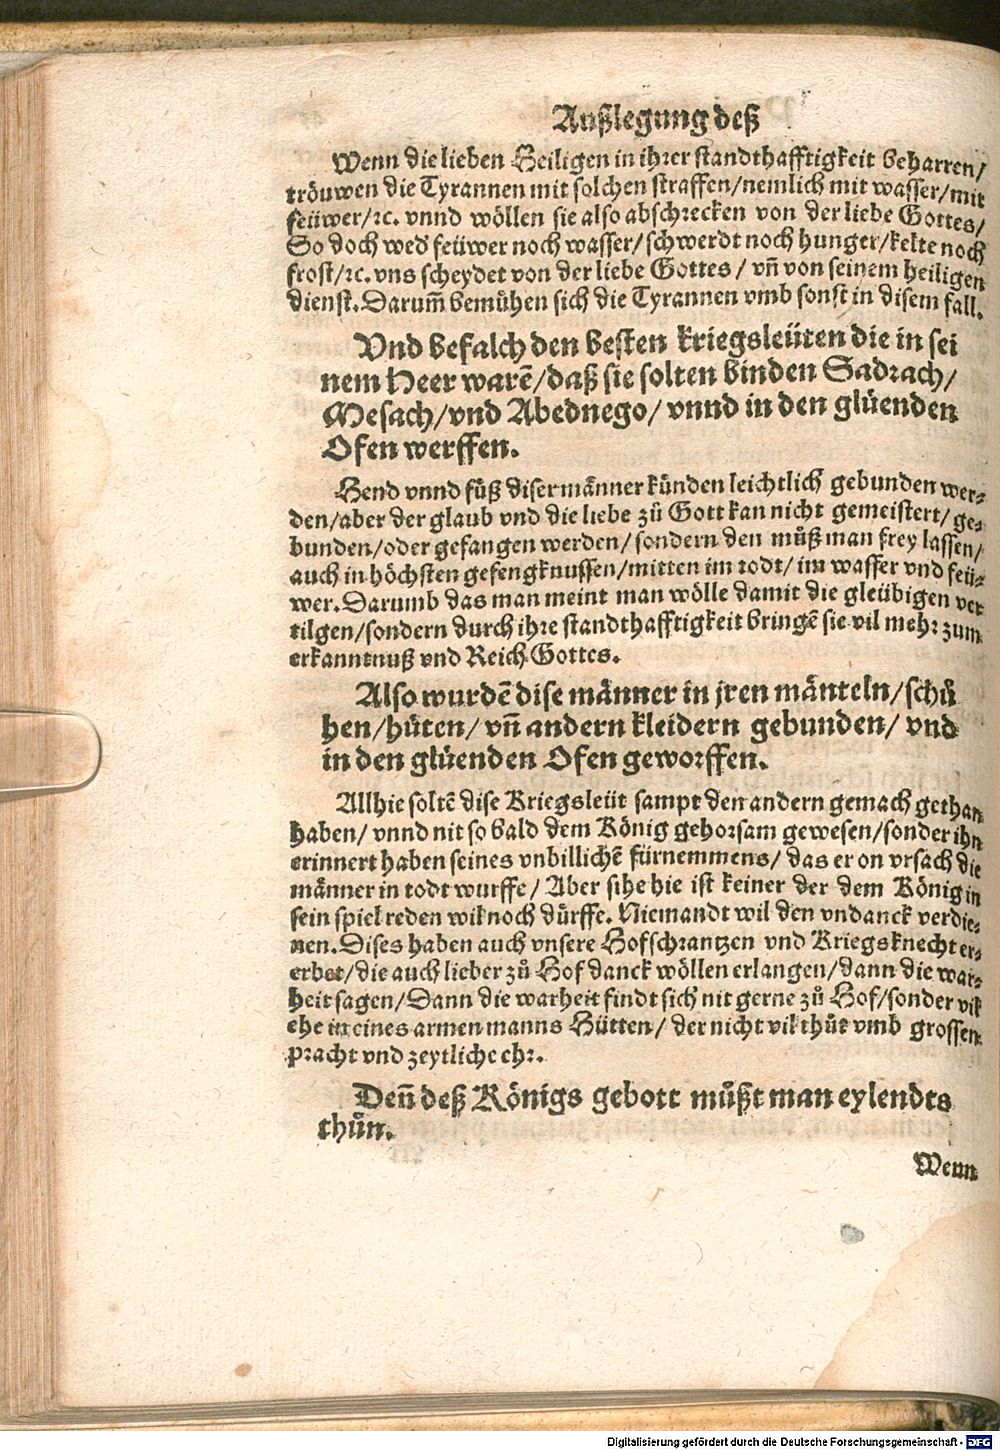 Außlegung deß
Wenn die lieben Heiligen in ihrer standthafftigkeit beharren/
tröuwen die Tyrannen mit solchen straffen/nemlich mit wasser/mit
feüwer/ꝛc. vnnd wöllen sie also abschrecken von der liebe Gottes/
So doch wed feüwer noch wasser/schwerdt noch hunger/kelte noch
frost/ꝛc. vns scheydet von der liebe Gottes/ vñ von seinem heiligen
dienst. Darum̃ bemühen sich die Tyrannen vmb sonst in disem fall.
Vnd befalch den besten kriegsleüten die in sei
nem Heer warẽ/daß sie solten binden Sadrach/
Mesach/vnd Abednego/ vnnd in den glüenden
Ofen werffen.
Hend vnnd füß diser männer künden leichtlich gebunden wer-
den/aber der glaub vnd die liebe zů Gott kan nicht gemeistert/ ge-
bunden/oder gefangen werden/ sondern den můß man frey lassen/
auch in höchsten gefengknussen/mitten im todt/ im wasser vnd feü-
wer. Darumb das man meint man wölle damit die gleübigen ver
tilgen/sondern durch ihre standthafftigkeit bringẽ sie vil mehr zum
erkanntnuß vnd Reich Gottes.
Also wurdẽ dise männer in jren mänteln/schů
hen/hüten/ vñ andern kleidern gebunden/ vnd
in den glüenden Ofen geworffen.
Allhie soltẽ dise Kriegsleüt sampt den andern gemach gethan
haben/ vnnd nit so bald dem König gehorsam gewesen/sonder ihn
erinnert haben seines vnbillichẽ fürnemmens/ das er on vrsach die
männer in todt wurffe/ Aber sihe hie ist keiner der dem König in
sein spiel reden wil noch dürffe. Niemandt wil den vndanck verdie-
nen. Dises haben auch vnsere Hofschrantzen vnd Kriegsknecht er-
erbet/die auch lieber zů Hof danck wöllen erlangen/dann die war-
heit sagen/Dann die warheit findt sich nit gerne zů Hof/sonder vil
ehe in eines armen manns Hütten/ der nicht vil thůt vmb grossen
pracht vnd zeytliche ehr.
Deñ deß Königs gebott můßt man eylendts
thůn.
Wenn
Digitalisierung gefördert durch die Deutsche Forschungsgemeinschaft - DFG